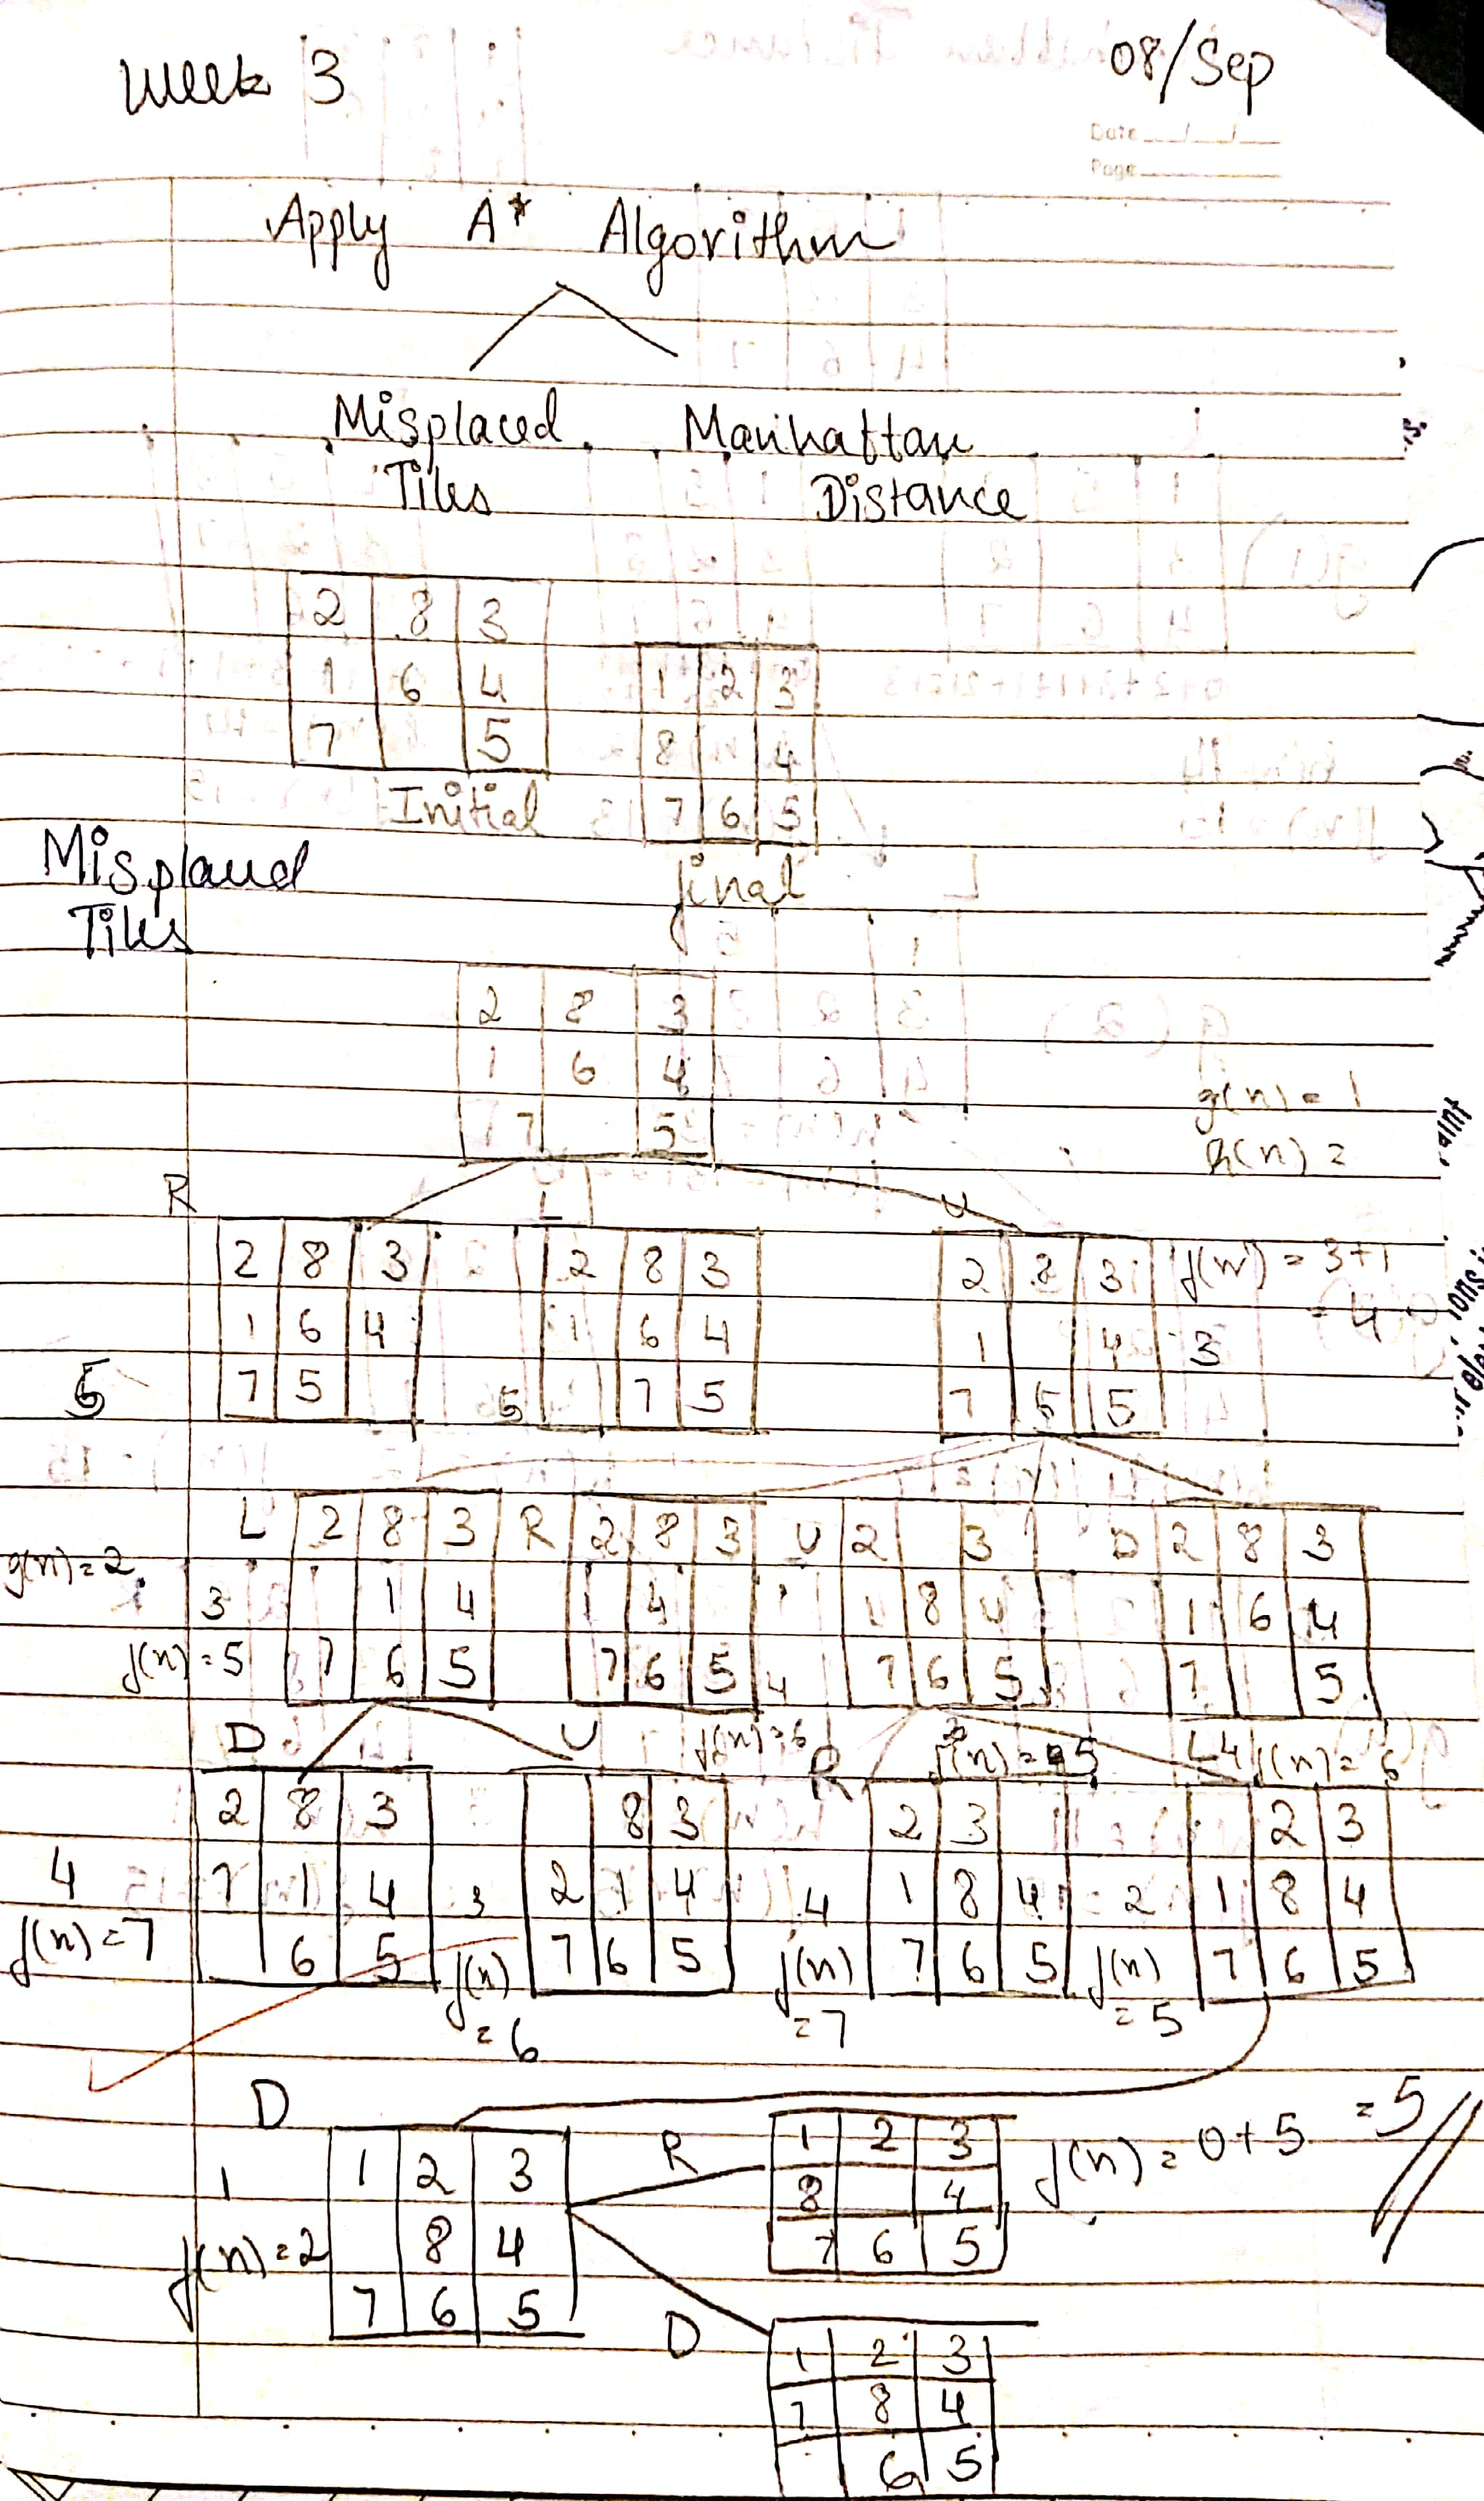 Week 3
08/Sep
Date
Page
Apply A* Algorithm
Misplaced Manhattan
Tiles Distance
2 8 3
1 6 4
7 5
Initial
1 2 3
8 4
7 6 5
final
Misplaced
Tiles
2 8 3
1 6 4
7 5
g(n) = 1
h(n) =
R L U
2 8 3
1 6 4
7 5
5
2 8 3
1 6 4
7 5
5
2 8 3
1 4
7 6 5
3
f(n) = 3+1
= 4
g(n) = 2
L
2 8 3
1 4
7 6 5
3
f(n) = 5
R
2 8 3
1 4
7 6 5
4
f(n) = 6
U
2 3
1 8 4
7 6 5
3
f(n) = 5
D
2 8 3
1 6 4
7 5
4
f(n) = 6
D
2 8 3
7 1 4
6 5
4
f(n) = 7
U
8 3
2 1 4
7 6 5
3
f(n)
= 6
R
2 3
1 8 4
7 6 5
4
f(n)
= 7
L
2 3
1 8 4
7 6 5
2
f(n)
= 5
D
1 2 3
8 4
7 6 5
1
f(n) = 2
R
1 2 3
8 4
7 6 5
f(n) = 0+5 = 5
D
1 2 3
7 8 4
6 5